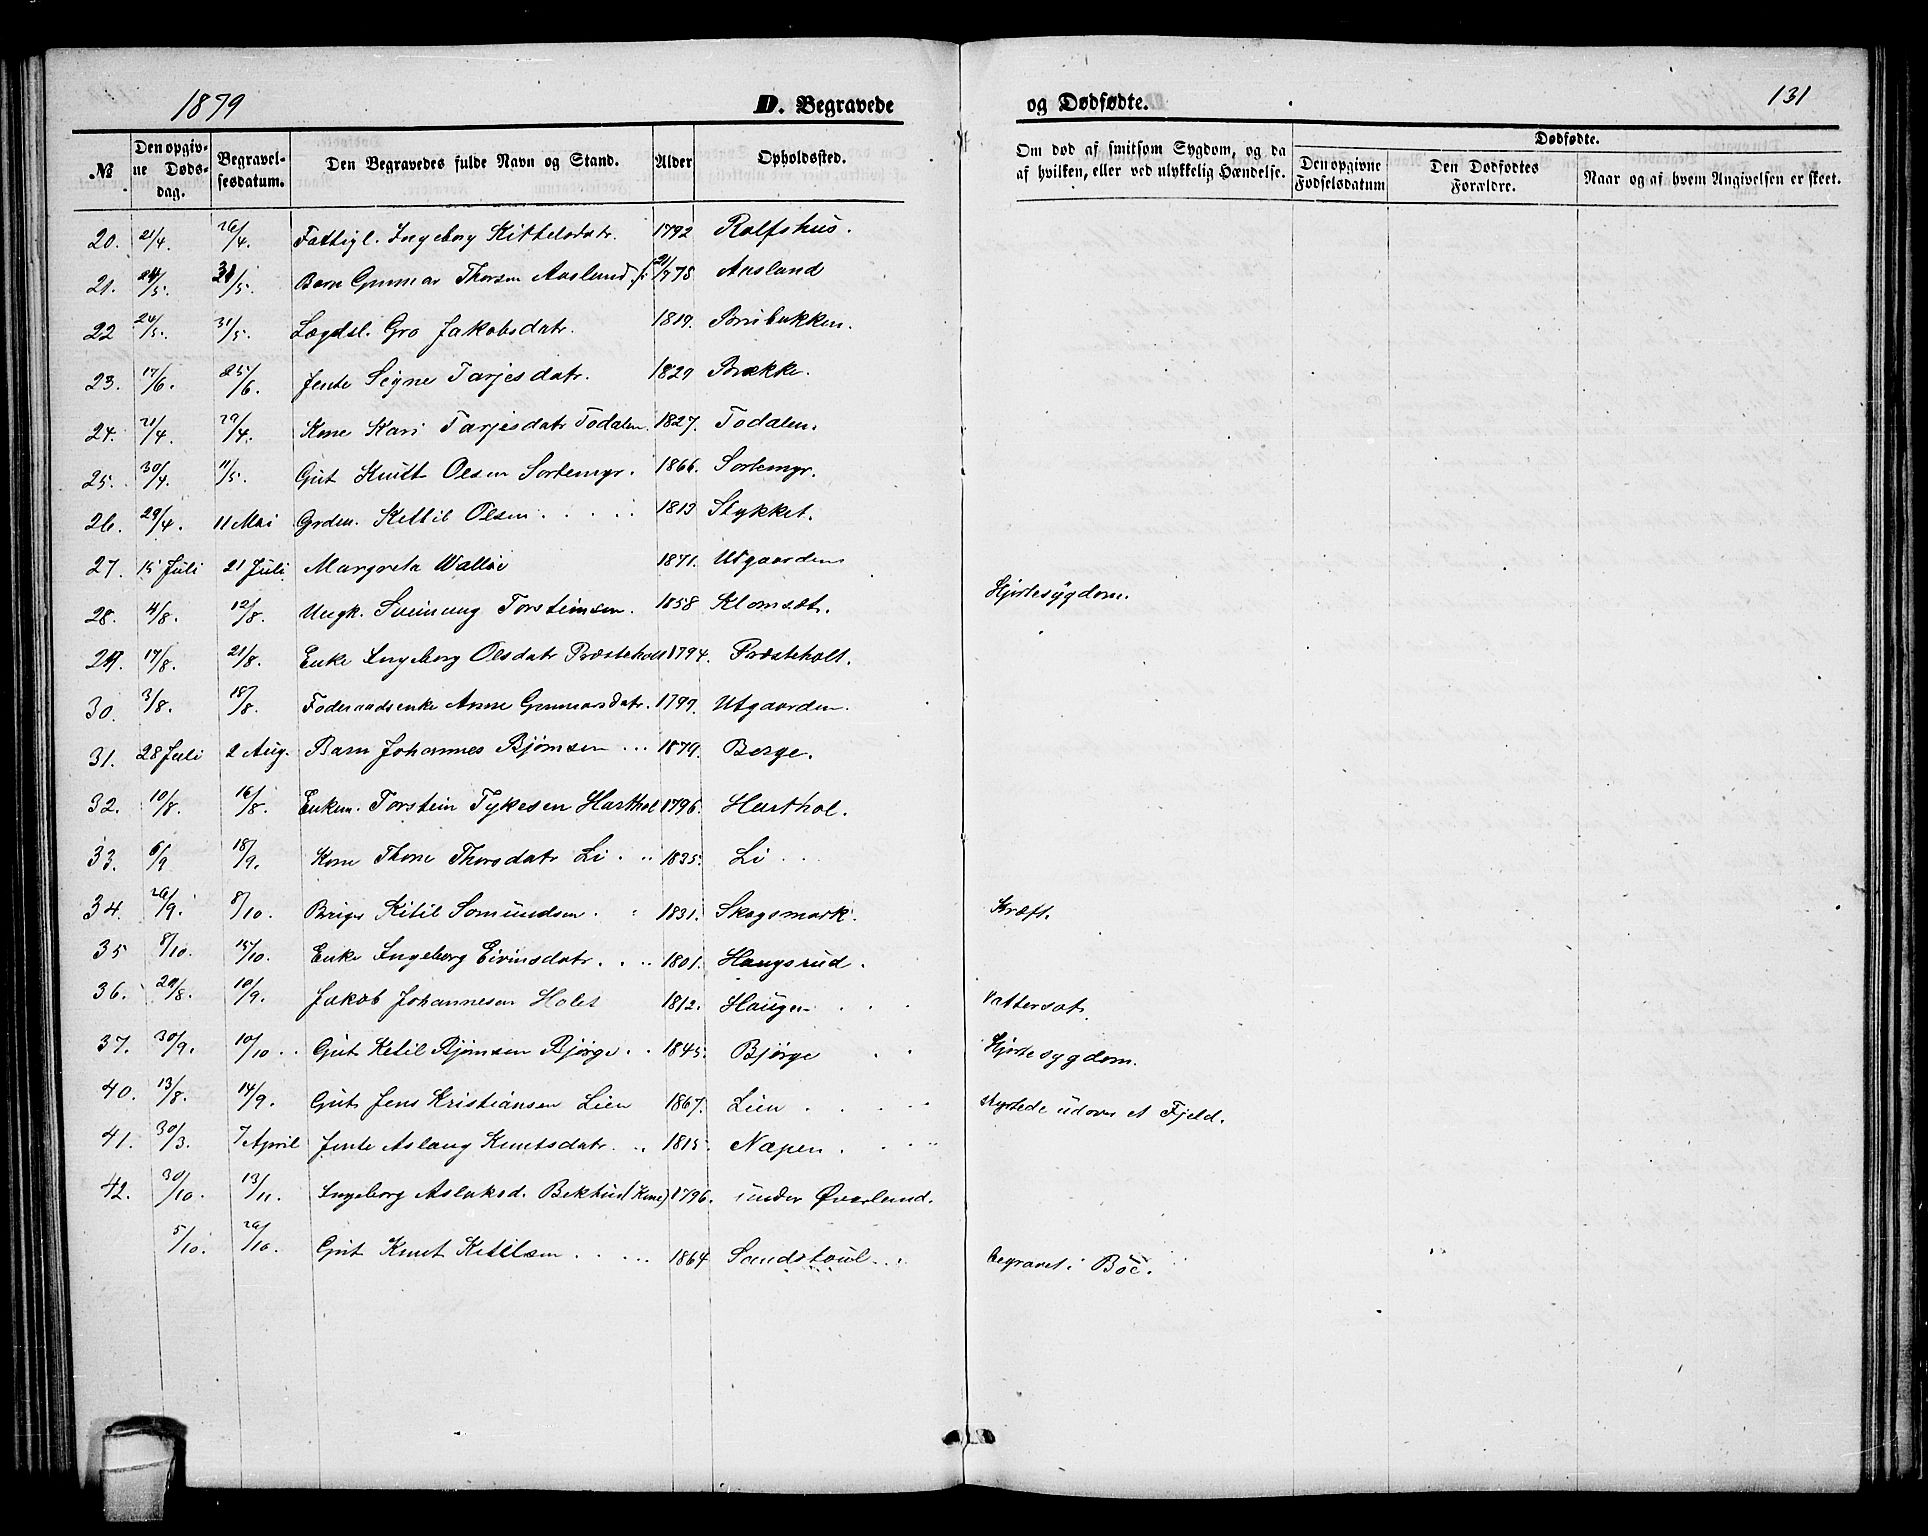 1879 D. Begravede og Dødfødte. 131
№ Den opgivne Dødsdag. Begravelsesdatum. Den Begravedes fulde Navn og Stand. Alder Opholdssted. Om død af smitsom Sygdom, og da af hvilken, eller ved ulykkelig Hændelse. Dødfødte. Den opgivne Fødselsdatum Den Dødfødtes Forældre. Naar og af hvem Angivelsen er skeet.
20. 21/4. 26/4. Fattigl. Ingeborg Kittelsdatr. 1792 Rolfshus.
21. 24/5. 31/5. Barn Gunnar Thorsen Aasland. f. 21/7 78. Aasland
22 24/5. 31/5. Lægdsl. Gro Jakobsdatr. 1819. Brubakken.
23. 17/6. 25/6. Jente Signe Tarjesdatr. 1829 Brække.
24. 21/4. 29/4. Kone Kari Tarjesdatr Todalen. 1827. Todalen.
25. 30/4. 11/5. Gut Knutt Olsen Sortemyr. 1866. Sortemyr.
26. 29/4. 11 Mai Grdm. Kettil Olsen. 1813 Stykket.
27. 15 Juli 21 Juli Margreta Walløe 1871. Utgaarden
28. 4/8. 12/8. Ungk. Sveinung Torsteinsen. 1858 Klomsæt. Hjertesygdom.
29. 17/8. 21/8. Enke Ingeborg Olsdatr Præsteholt 1794. Præsteholt.
30. 3/8. 18/8. Foderaadsenke Anne Gunnarsdatr. 1799. Utgaarden.
31. 28 Juli 2 Aug. Barn Johannes Bjørnsen ... 1879. Berge.
32. 10/8. 16/8. Enkem. Torstein Tykesen Harthol 1796. Harthol.
33. 6/9 18/9. Kone Thone Thorsdatr Li. 1835. Li
34. 26/9. 8/10. Kitil Somundsen. 1831. Skogsmark. Kræft.
35 8/10. 15/10. Enke Ingeborg Eivinsdatr. 1801. Haugsrud.
36. 29/8. 10/9. Jakob Johannesen Holet 1812. Haugen Vattersot.
37. 30/9. 10/10. Gut Ketil Bjørnsen Bjørge. 1845. Bjørge Hjertesygdom.
40. 13/8. 14/9. Gut Jens Kristiansen Lien 1867. Lien. styrtede udover et Fjeld.
41. 30/3. 7 April Jente Aslaug Knutsdatr. 1815. Næpen.
42. 30/10. 13/11. Ingeborg Aslaksd. Bekhus (Kone) 1796. under Øverland.
5/10. 29/10. Gut Knut Ketilsen 1864 Sandstoul. Begravet i Böe.